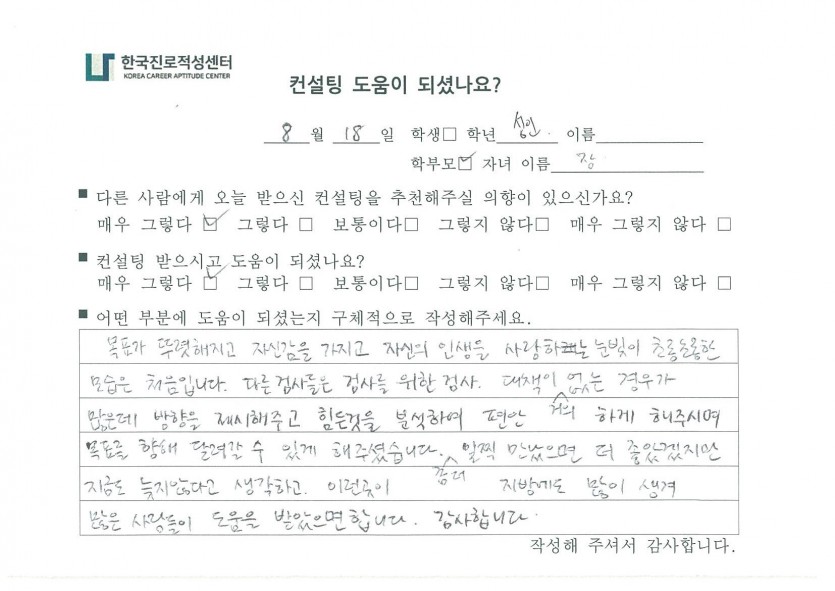 한국진로적성센터
KOREA CAREER APTITUDE CENTER
컨설팅 도움이 되셨나요?
8 월 18 일 학생□ 학년 성인 이름
학부모☑ 자녀 이름 장
■ 다른 사람에게 오늘 받으신 컨설팅을 추천해주실 의향이 있으신가요?
매우 그렇다 ☑ 그렇다 □ 보통이다□ 그렇지 않다□ 매우 그렇지 않다 □
■ 컨설팅 받으시고 도움이 되셨나요?
매우 그렇다 ☑ 그렇다 □ 보통이다□ 그렇지 않다□ 매우 그렇지 않다 □
■ 어떤 부분에 도움이 되셨는지 구체적으로 작성해주세요.
목표가 뚜렷해지고 자신감을 가지고 자신의 인생을 사랑하는 눈빛이 초롱초롱한
모습은 처음입니다. 다른검사들은 검사를 위한 검사. 대책이 없는 경우가
거의
많은데 방향을 제시해주고 힘든것을 분석하여 편안 하게 해주시며
목표를 향해 달려갈 수 있게 해주셨습니다. 일찍 만났으면 더 좋았겠지만
좀더
지금도 늦지않다고 생각하고. 이런곳이 지방에도 많이 생겨
많은 사람들이 도움을 받았으면합니다. 감사합니다.
작성해 주셔서 감사합니다.